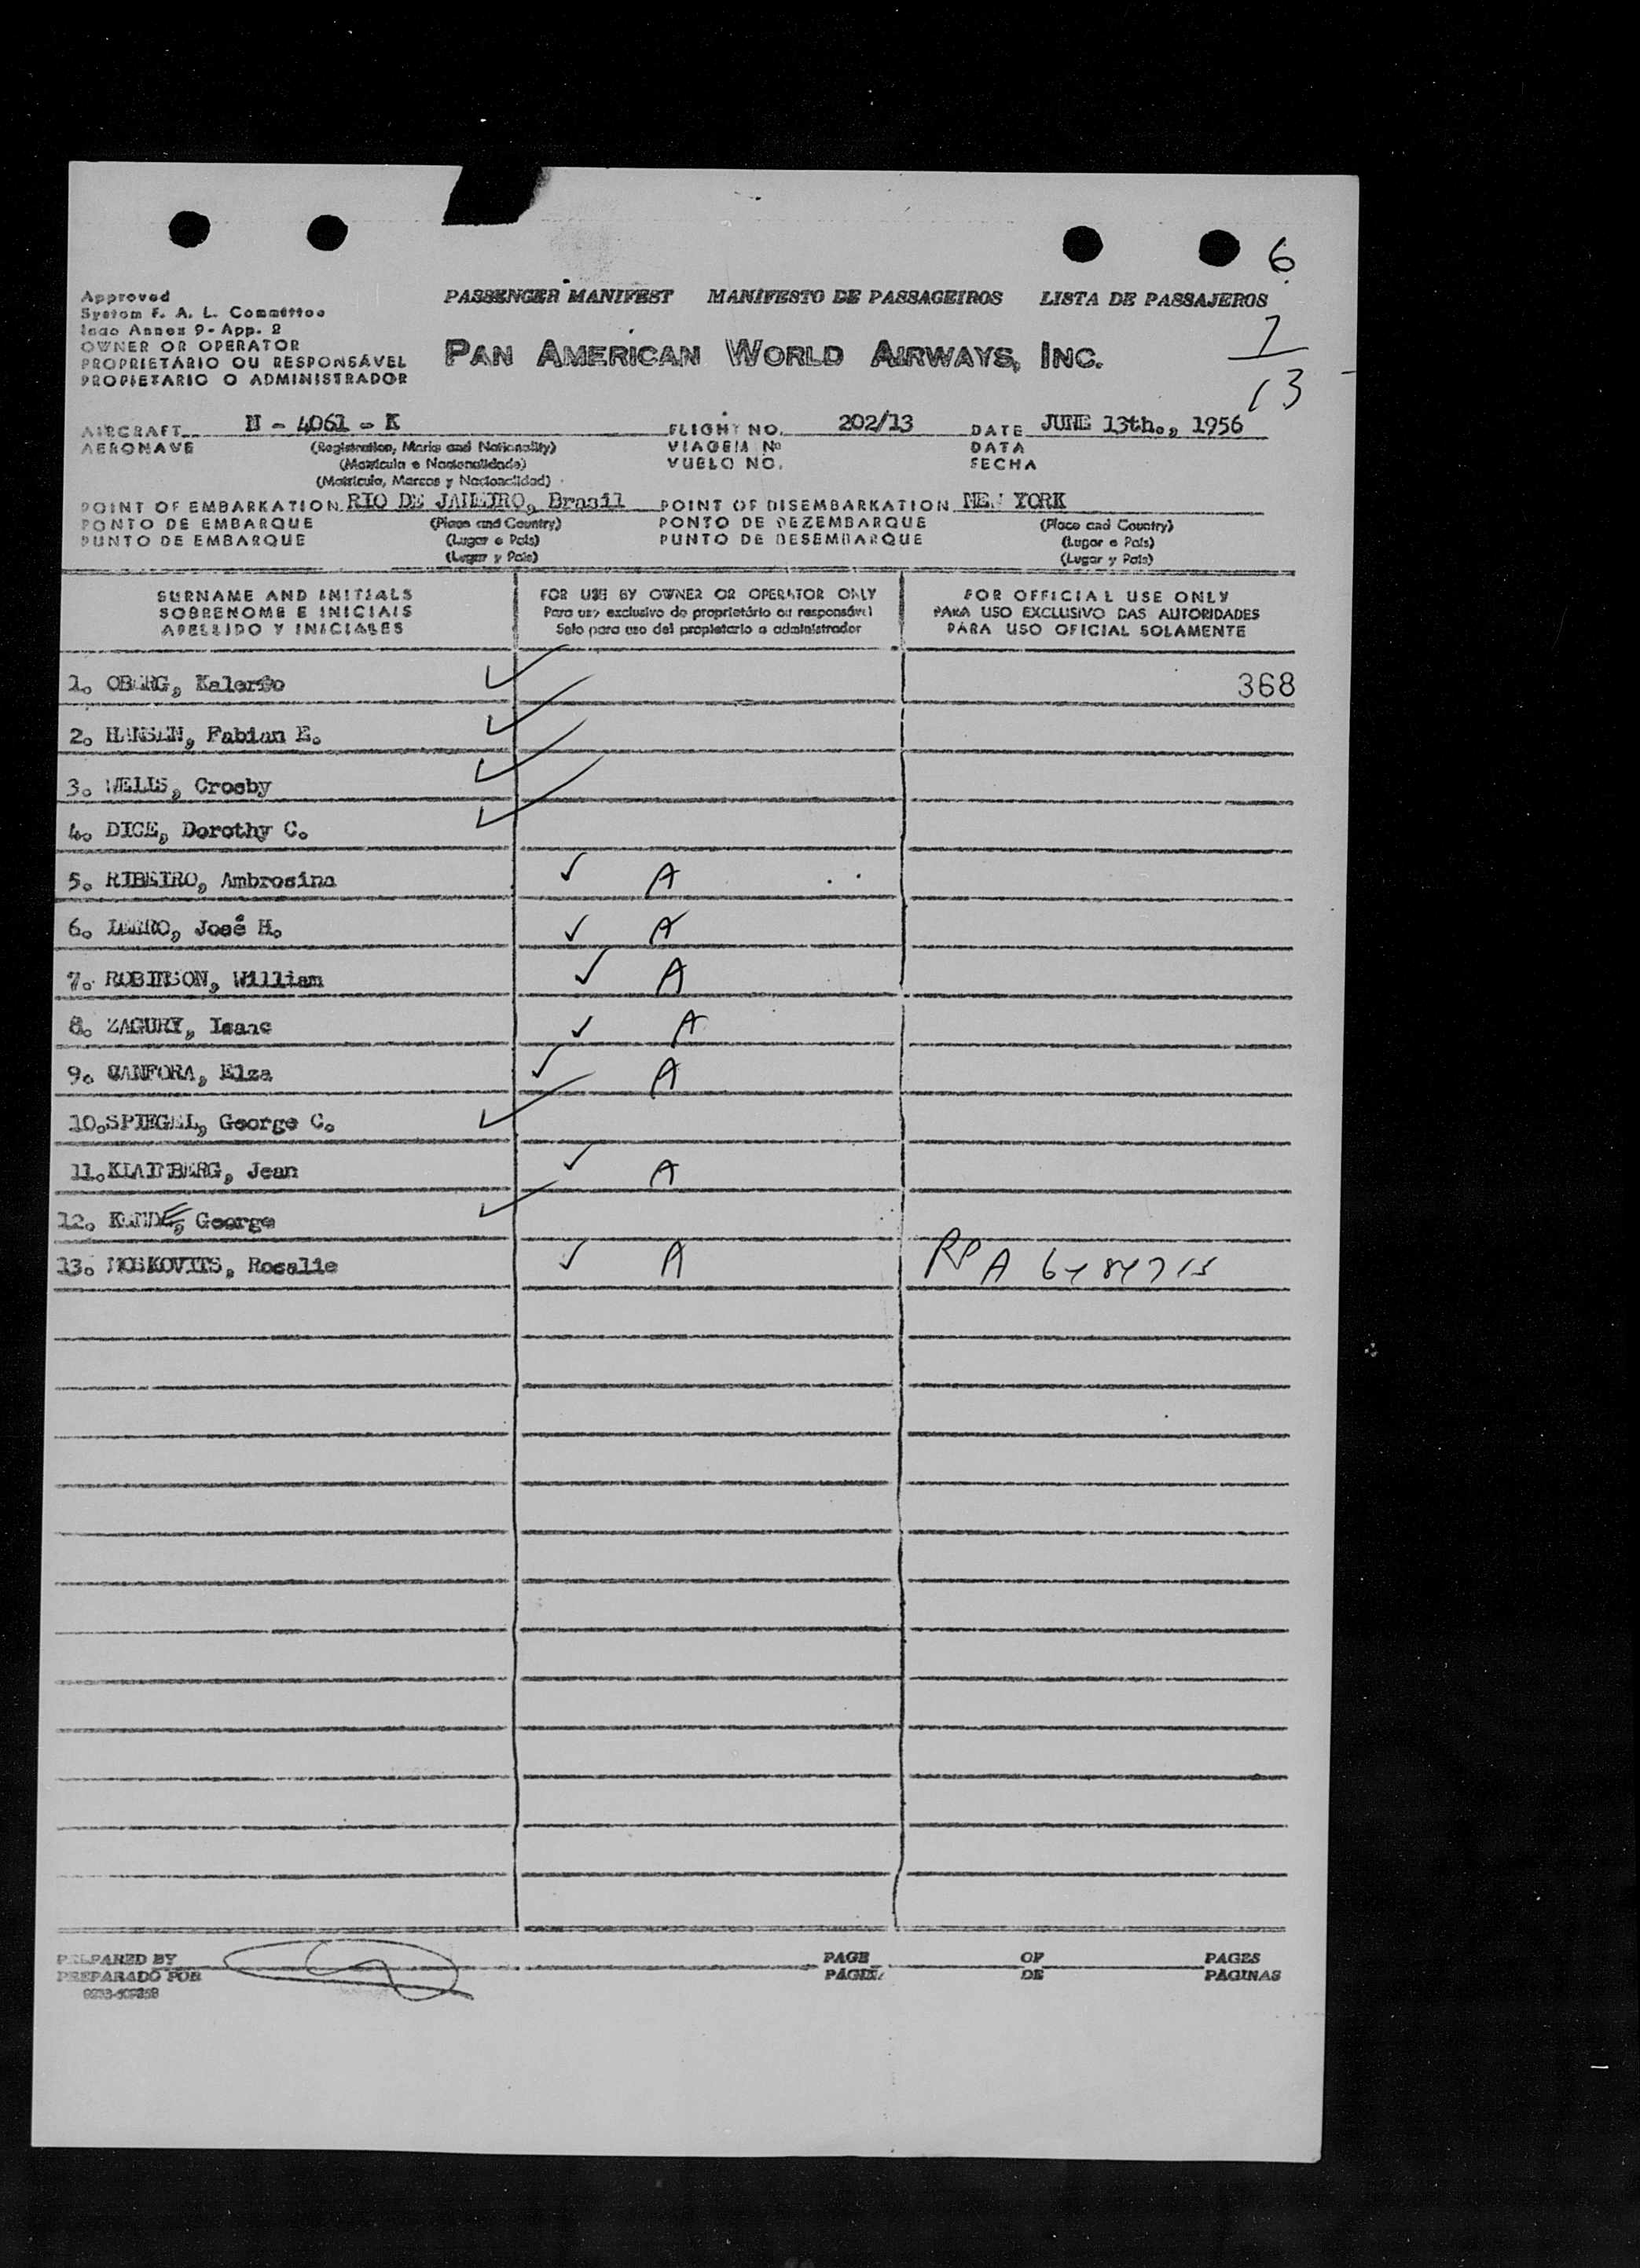 6
Approved
System F. A. L. Committee
Icao Annex 9 - App. 2
OWNER OR OPERATOR
PROPRIETÁRIO OU RESPONSÁVEL
PROPIETARIO O ADMINISTRADOR
PASSENGER MANIFEST MANIFESTO DE PASSAGEIROS LISTA DE PASSAJEROS
PAN AMERICAN WORLD AIRWAYS, INC.
13
AIRCRAFT N - 4061 - K FLIGHT NO. 202/13 DATE JUNE 13th., 1956
AERONAVE (Registration, Marks and Nationality) VIAGEM Nº DATA
(Matrícula e Nacionalidade) VUELO NO. FECHA
(Matrícula, Marcas y Nacionalidad)
POINT OF EMBARKATION RIO DE JANEIRO, Brasil POINT OF DISEMBARKATION NEW YORK
PONTO DE EMBARQUE (Place and Country) PONTO DE DEZEMBARQUE (Place and Country)
PUNTO DE EMBARQUE (Lugar e País) PUNTO DE DESEMBARQUE (Lugar e País)
(Lugar y País) (Lugar y País)
SURNAME AND INITIALS FOR USE BY OWNER OR OPERATOR ONLY FOR OFFICIAL USE ONLY
SOBRENOME E INICIAIS Para uso exclusivo do proprietário ou responsável PARA USO EXCLUSIVO DAS AUTORIDADES
APELLIDO Y INICIALES Solo para uso del propietario o administrador PARA USO OFICIAL SOLAMENTE
1. OBERG, Kalervo 368
2. HANSEN, Fabian E.
3. WELLS, Crosby
4. DICE, Dorothy C.
5. RIBEIRO, Ambrosina A
6. José H. A
7. ROBINSON, William A
8. ZAGURY, Isaac A
9. CANFORA, Elza A
10. SPIEGEL, George C.
11. KLAINBERG, Jean A
12. KENDE, George
13. MOSKOVITS, Rosalie A A
PREPARED BY PAGE OF PAGES
PREPARADO POR PÁGINA DE PÁGINAS